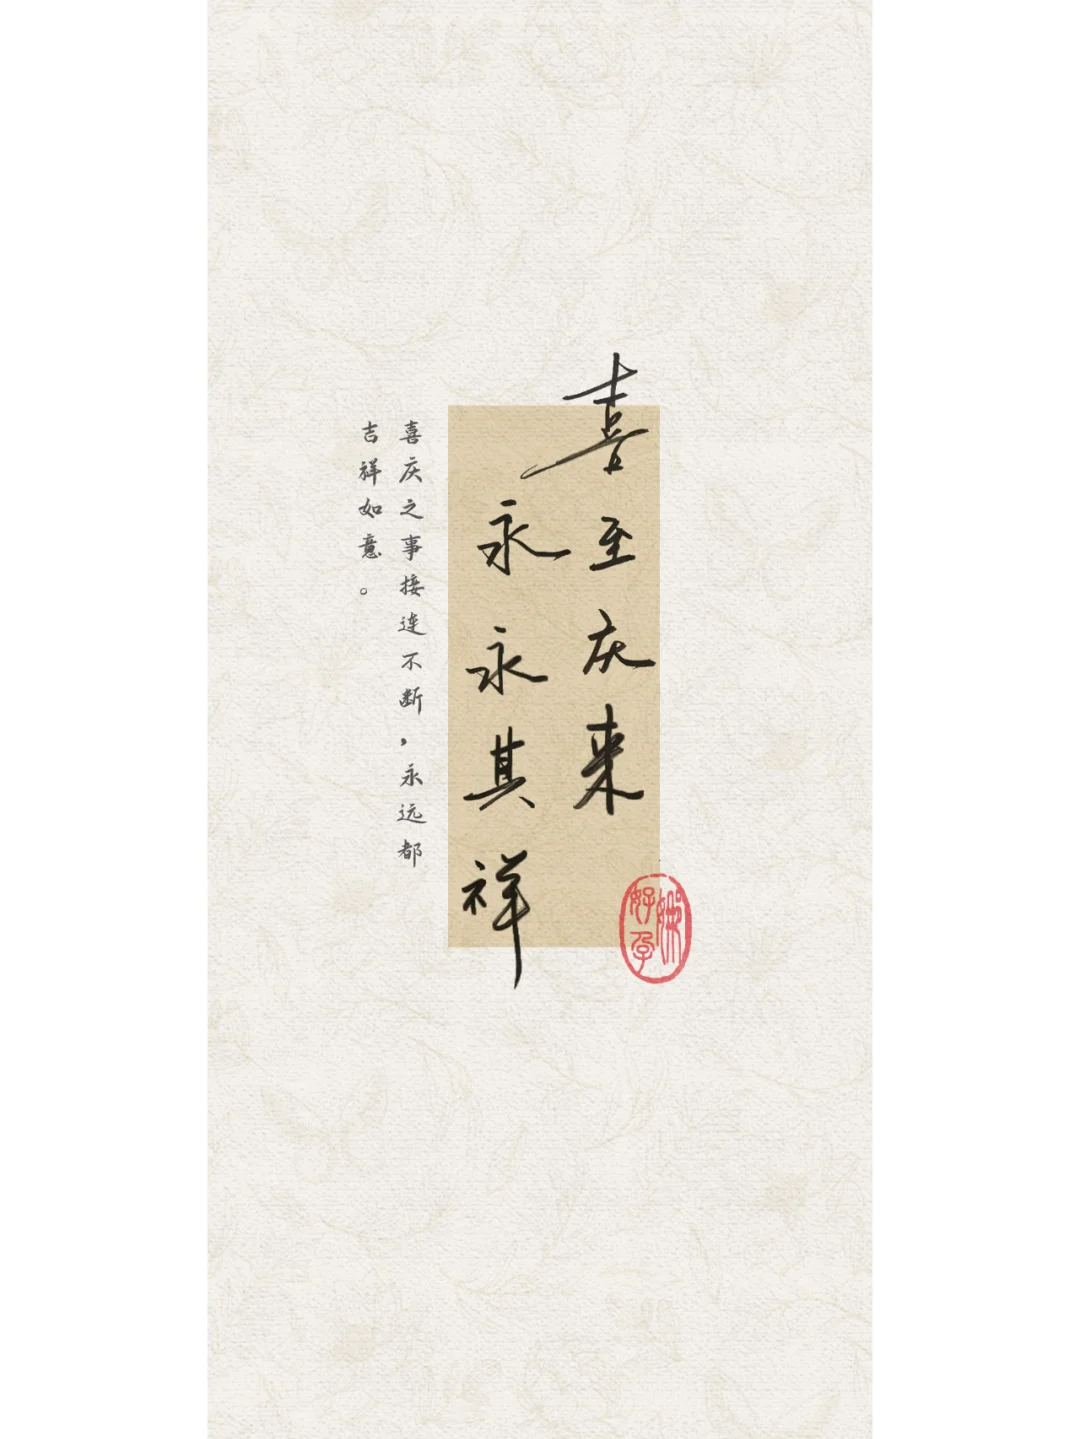 喜至庆来
永永其祥
喜庆之事接连不断，永远都
吉祥如意。
好孕